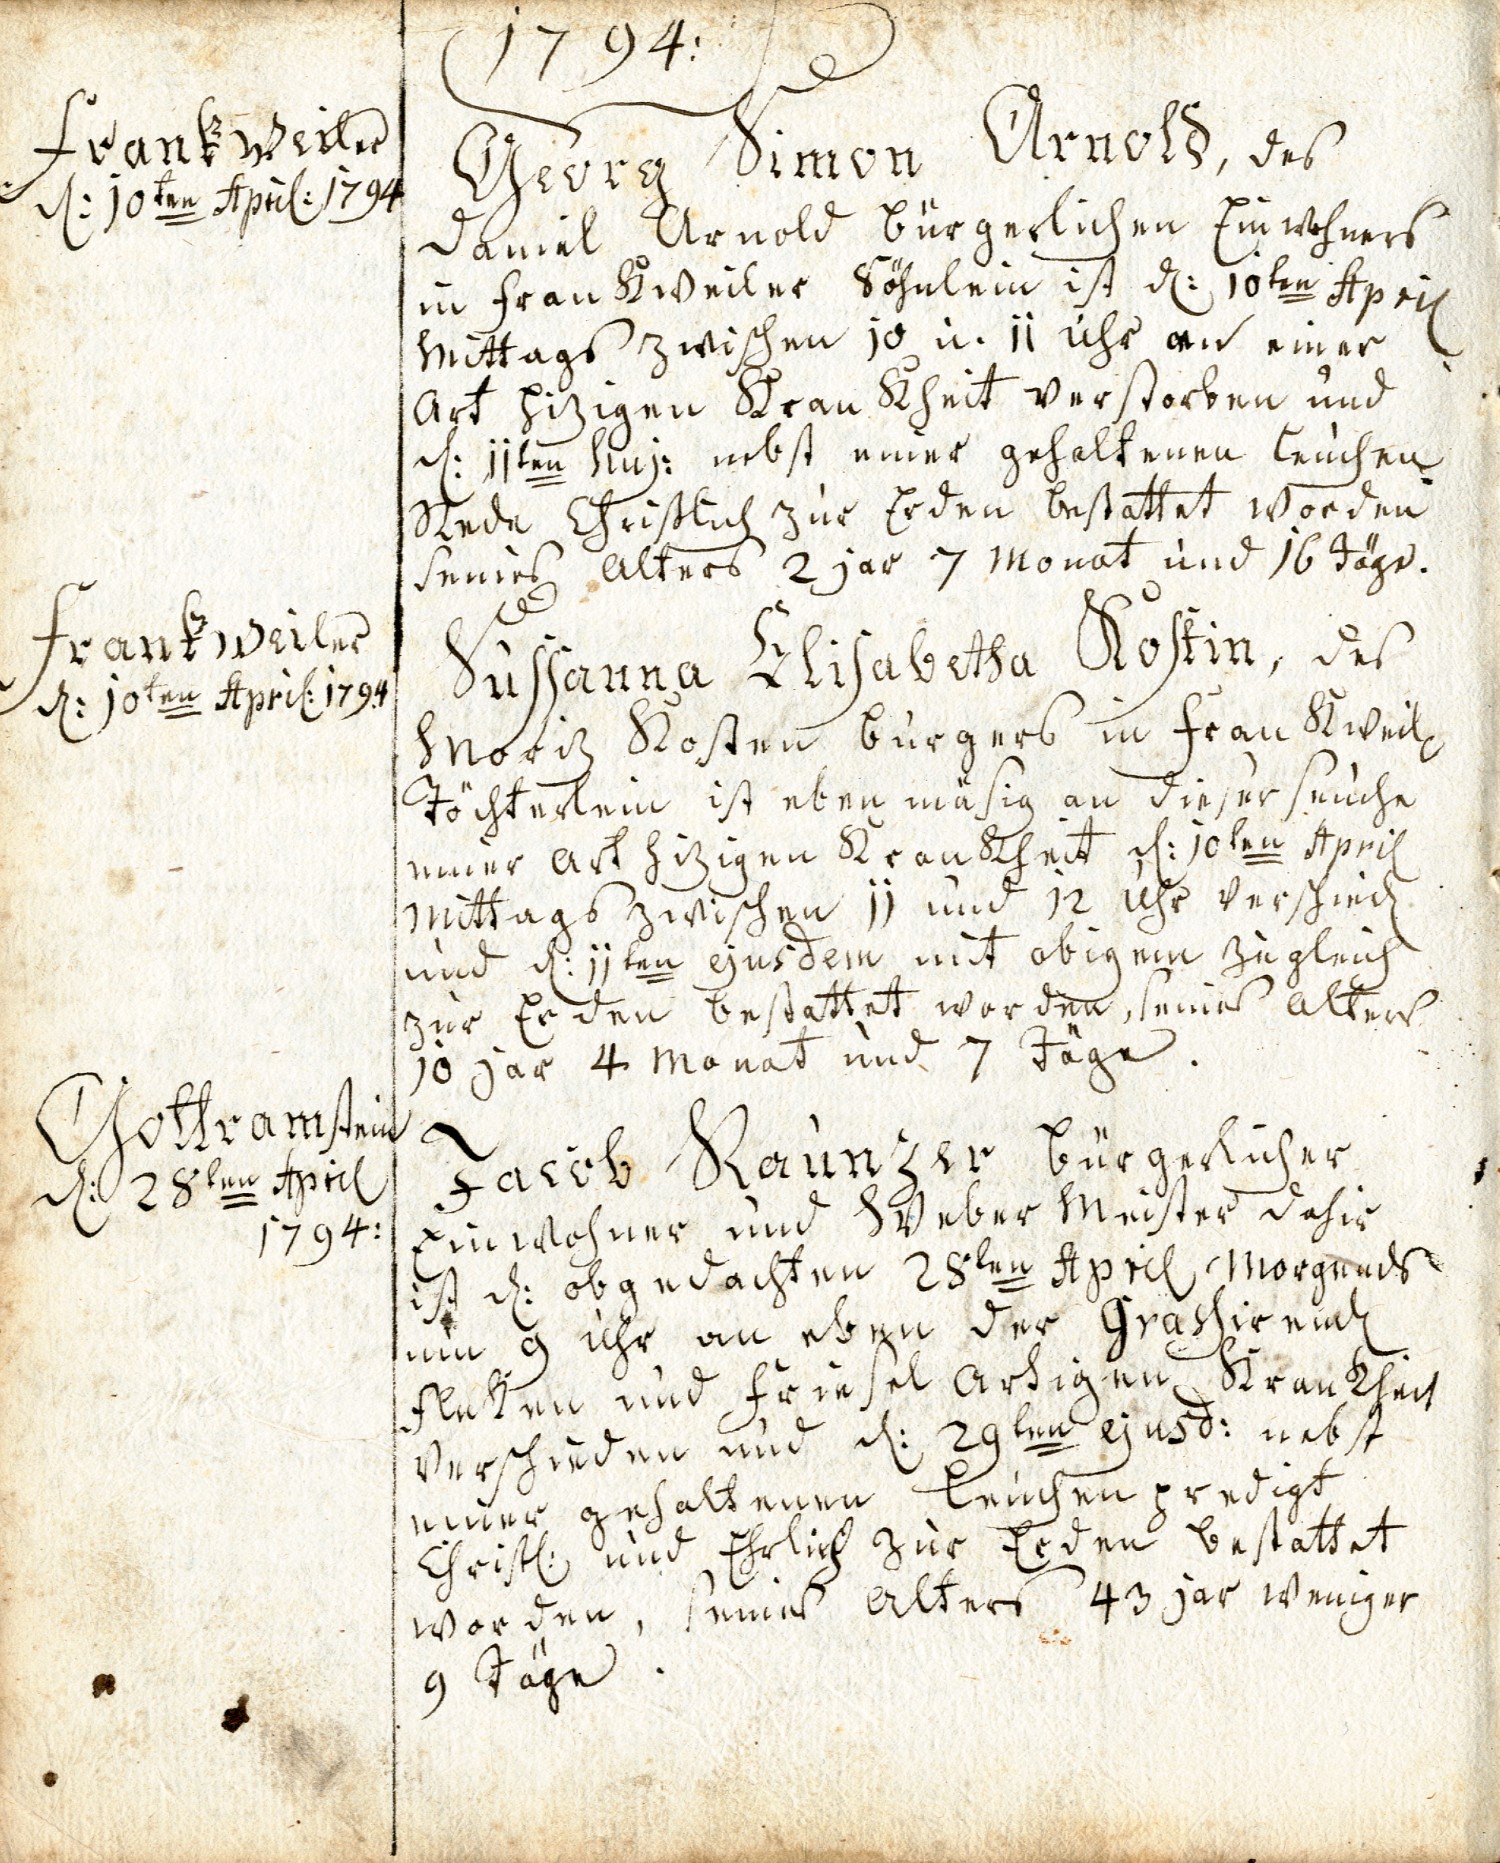 1794:
Frankweiler
d: 10ten April: 1794
Georg Simon Arnold, des
Daniel Arnold bürgerlichen Einwohners
in Frankweiler Söhnlein ist d: 10ten April
Mittags zwischen 10 u. 11 Uhr an einer
Art hizigen Krankheit verstorben und
d: 11ten huj: nebst einer gehaltenen Leichen
Rede Christlich zur Erden bestattet worden
seines Alters 2 jar 7 Monat und 16 Täge.
Frankweiler
d: 10ten April: 1794
Sussanna Elisabetha Kostin, des
Moriz Kosten burgers in Frankweil
Töchterlein ist eben mäsig an dieser seuche
einer Art hizigen Krankheit d: 10ten April
Mittags zwischen 11 und 12 Uhr verschied
und d: 11ten ejusdem mit obigem zugleich
zur Erden bestattet worden, seines Alters
10 jar 4 Monat und 7 Täge.
Gottramstein
d: 28ten April
1794:
Jacob Raunzer bürgerlicher
Einwohner und Weber Meister dahir
ist d: obgedachten 28ten April Morgends
um 9 Uhr an eben der Grasirend
Fleken und Friesel Artigen Krankheit
verschieden und d: 29ten ejusd: nebst
einer gehaltenen Leichen predigt
Christl: und Ehrlich zur Erden bestattet
worden, seines Alters 43 jar weniger
9 Täge.